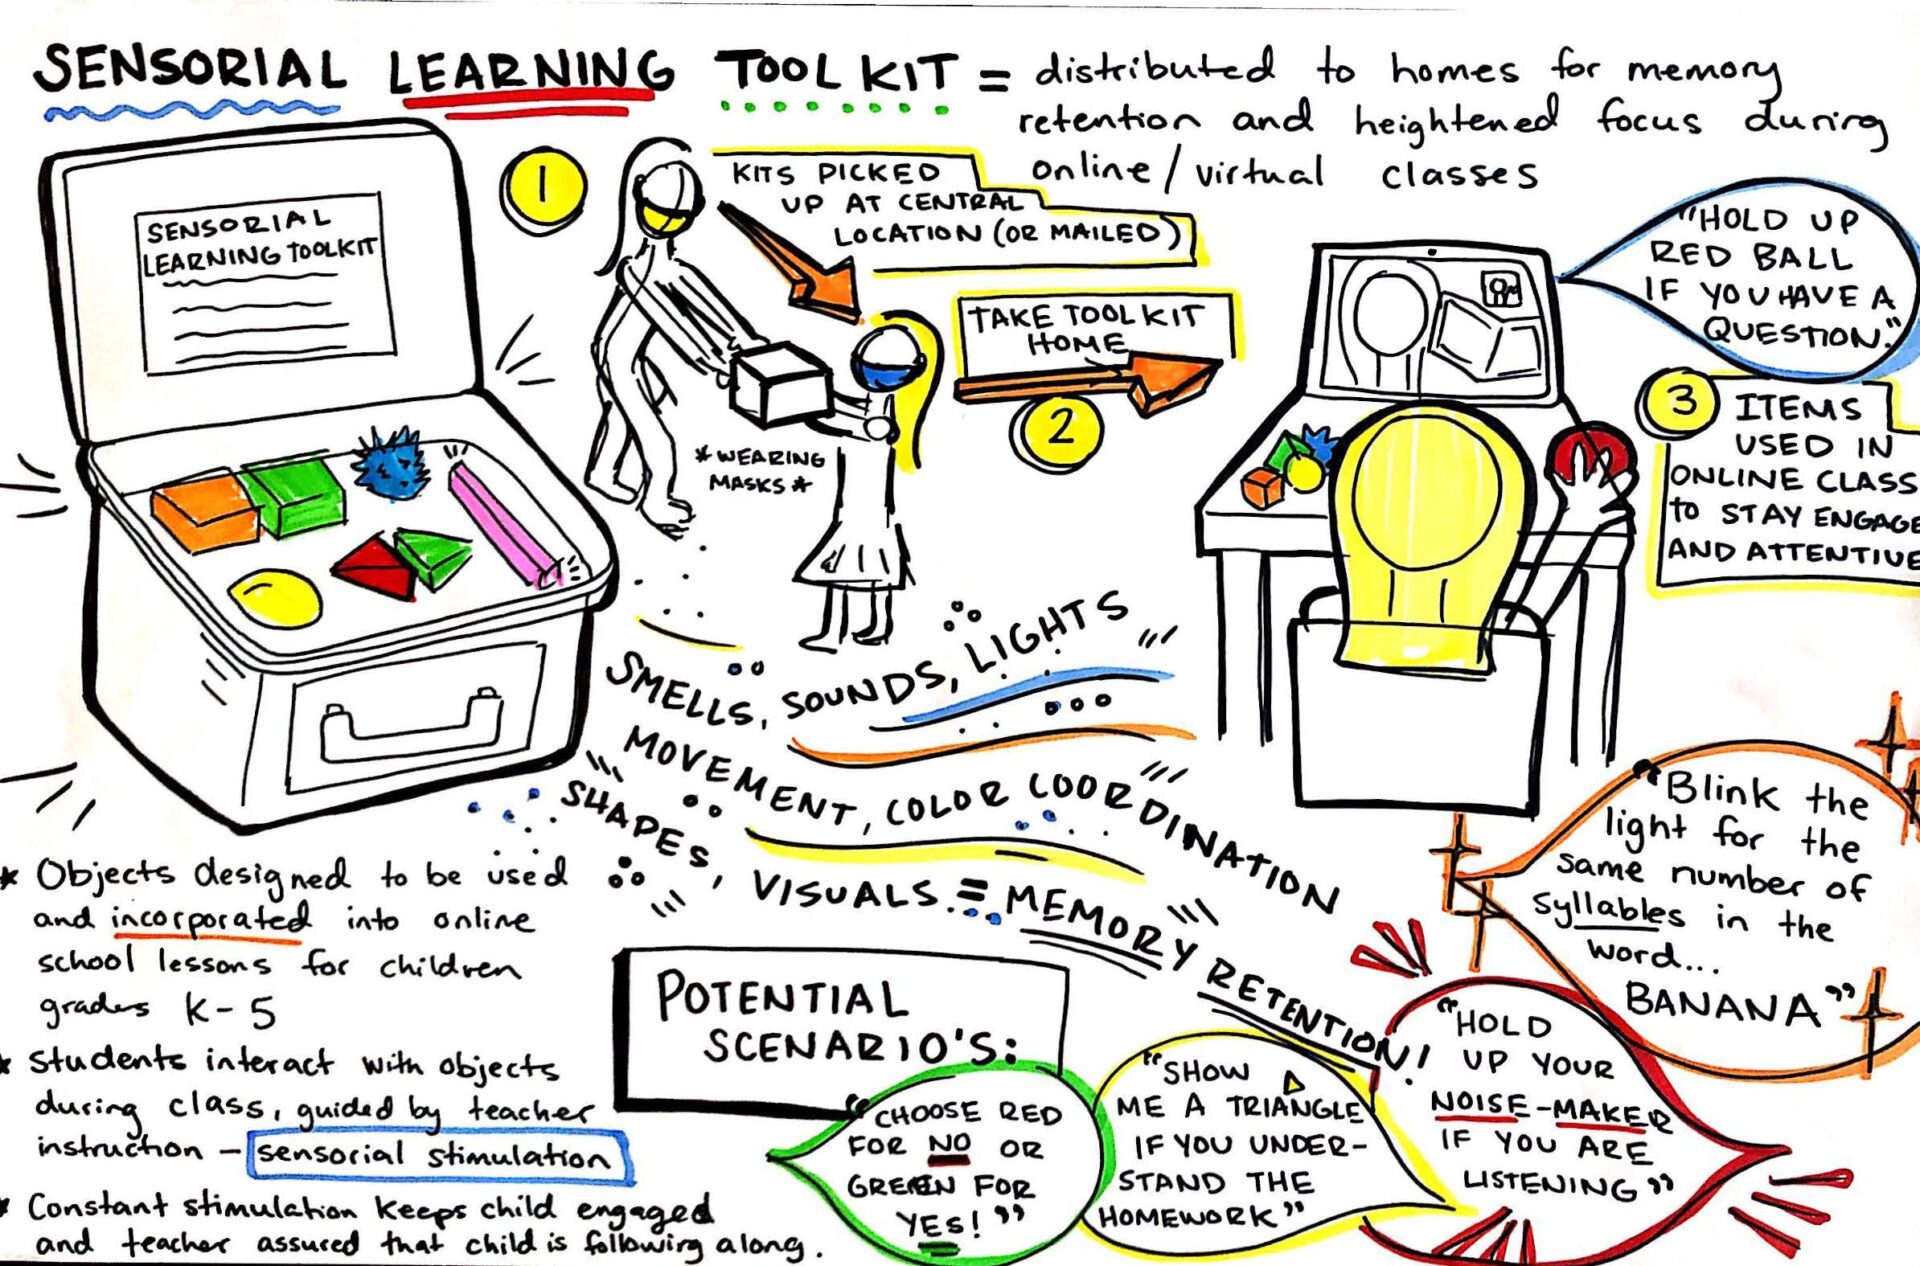 SENSORIAL LEARNING TOOL KIT = distributed to homes for memory
retention and heightened focus during
online/virtual classes
SENSORIAL
LEARNING TOOLKIT
1
KITS PICKED
UP AT CENTRAL
LOCATION (OR MAILED)
*WEARING
MASKS*
TAKE TOOLKIT
HOME
2
"HOLD UP
RED BALL
IF YOU HAVE A
QUESTION."
3
ITEMS
USED IN
ONLINE CLASS
to STAY ENGAGE
AND ATTENTIVE
SMELLS, SOUNDS, LIGHTS
MOVEMENT, COLOR COORDINATION
SHAPES, VISUALS = MEMORY RETENTION!
* Objects designed to be used
and incorporated into online
school lessons for children
grades K-5
* Students interact with objects
during class, guided by teacher
instruction - sensorial stimulation
* Constant stimulation keeps child engaged
and teacher assured that child is following along.
POTENTIAL
SCENARIO'S:
"CHOOSE RED
FOR NO OR
GREEN FOR
YES!"
"SHOW
ME A TRIANGLE
IF YOU UNDER-
STAND THE
HOMEWORK"
"HOLD
UP YOUR
NOISE-MAKER
IF YOU ARE
LISTENING"
"Blink the
light for the
same number of
syllables in the
word...
BANANA"